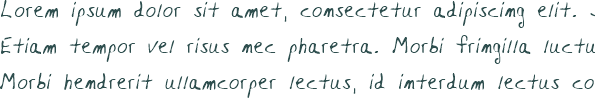 Lorem ipsum dolor sit amet, consectetur adipiscing elit.
Etiam tempor vel risus nec pharetra. Morbi fringilla luctu
Morbi hendrerit ullamcorper lectus, id interdum lectus co